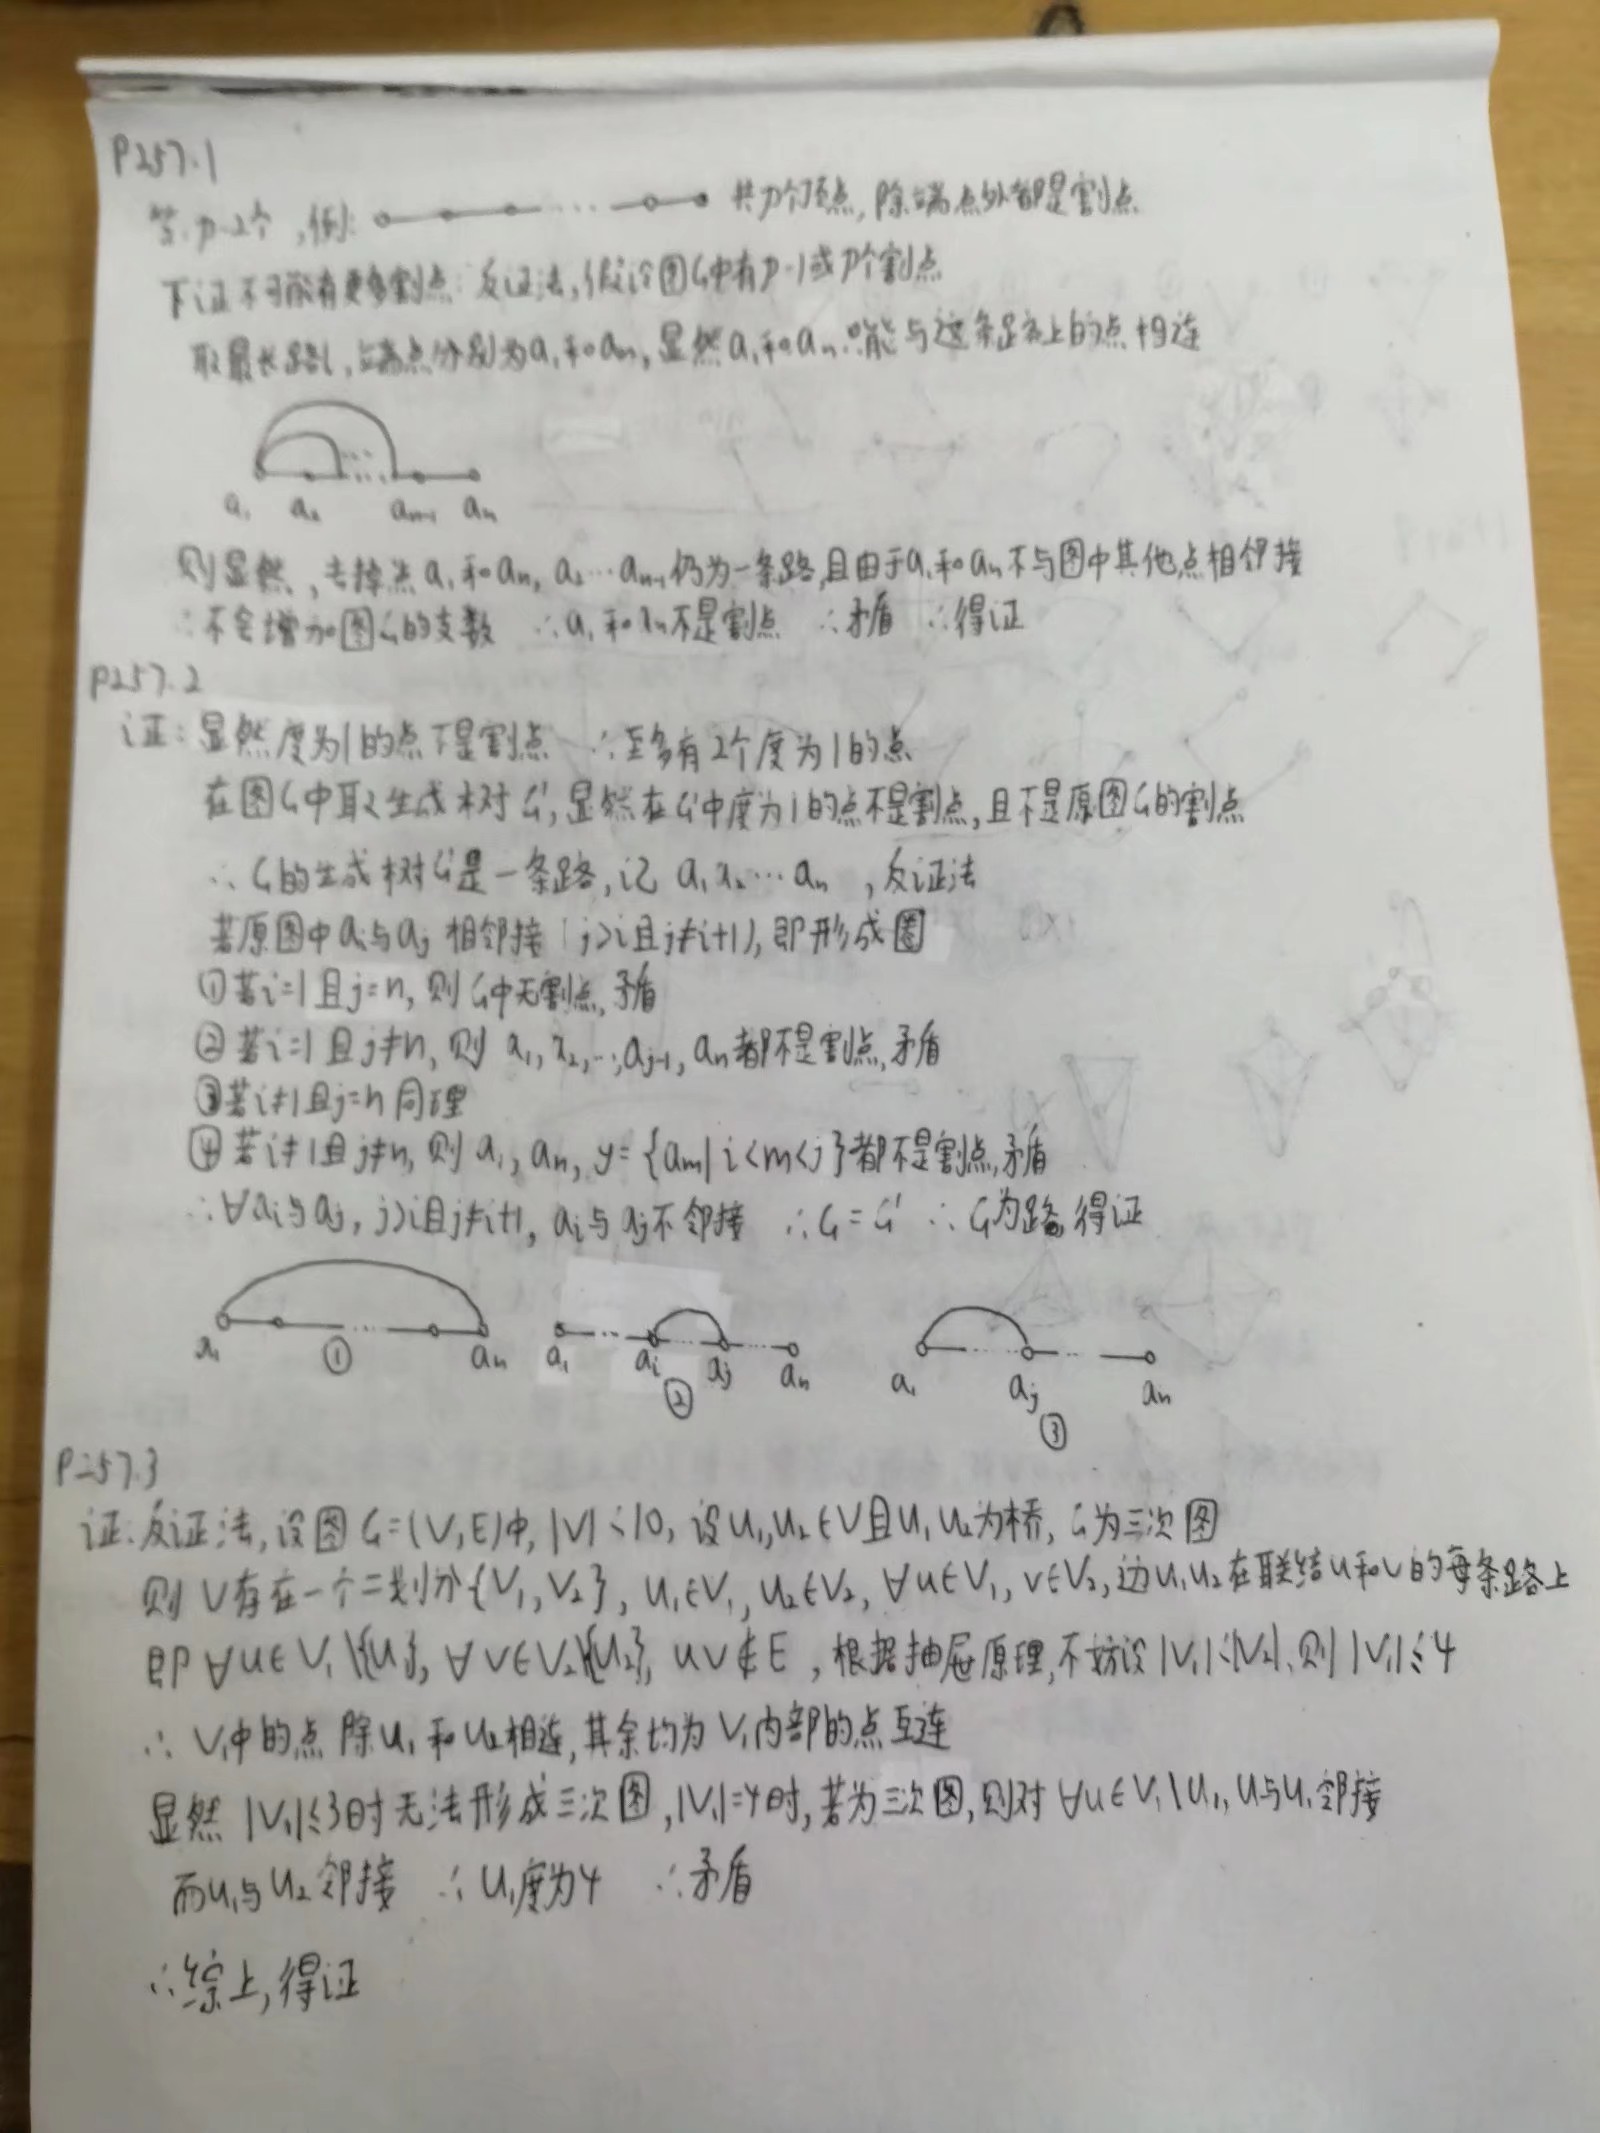 P257.1
答: p-2个, 例: ... 共p个顶点, 除端点外都是割点
下证不可能有更多割点: 反证法, 假设图G中有p-1或p个割点
取最长路, 端点分别为a₁和aₙ, 显然a₁和aₙ只能与这条路上的点相连
a₁ a₂ aₙ₋₁ aₙ
则显然, 去掉点a₁和aₙ, a₂…aₙ₋₁仍为一条路, 且由于a₁和aₙ不与图中其他点相邻接
∴不会增加图G的支数 ∴a₁和aₙ不是割点 ∴矛盾 ∴得证
P257.2
证: 显然度为1的点不是割点 ∴至多有2个度为1的点
在图G中取生成树G', 显然在G'中度为1的点不是割点, 且不是原图G的割点
∴G的生成树G'是一条路, 记 a₁a₂…aₙ, 反证法
若原图中aᵢ与aⱼ相邻接(j>i且j≠i+1), 即形成圈
①若i=1且j=n, 则G中无割点, 矛盾
②若i=1且j≠n, 则 a₁, a₂, …, aⱼ₋₁, aₙ都不是割点, 矛盾
③若i≠1且j=n同理
④若i≠1且j≠n, 则 a₁, aₙ, y={aₘ| i<m<j}都不是割点, 矛盾
∴∀aᵢ与aⱼ, j>i且j≠i+1, aᵢ与aⱼ不邻接 ∴G=G' ∴G为路, 得证
a₁ ① aₙ a₁ aᵢ ② aⱼ aₙ a₁ aⱼ ③ aₙ
P257.3
证: 反证法, 设图G=(V,E)中, |V|<10, 设u₁,u₂∈V且u₁u₂为桥, G为三次图
则V存在一个二划分{V₁,V₂}, u₁∈V₁, u₂∈V₂, ∀u∈V₁, v∈V₂, 边u₁u₂在联结u和v的每条路上
即∀u∈V₁\{u₁}, ∀v∈V₂\{u₂}, uv∉E, 根据抽屉原理, 不妨设|V₁|<|V₂|, 则|V₁|≤4
∴V₁中的点除u₁和u₂相连, 其余均为V₁内部的点互连
显然|V₁|≤3时无法形成三次图, |V₁|=4时, 若为三次图, 则对∀u∈V₁\u₁, u与u₁邻接
而u₁与u₂邻接 ∴u₁度为4 ∴矛盾
∴综上, 得证